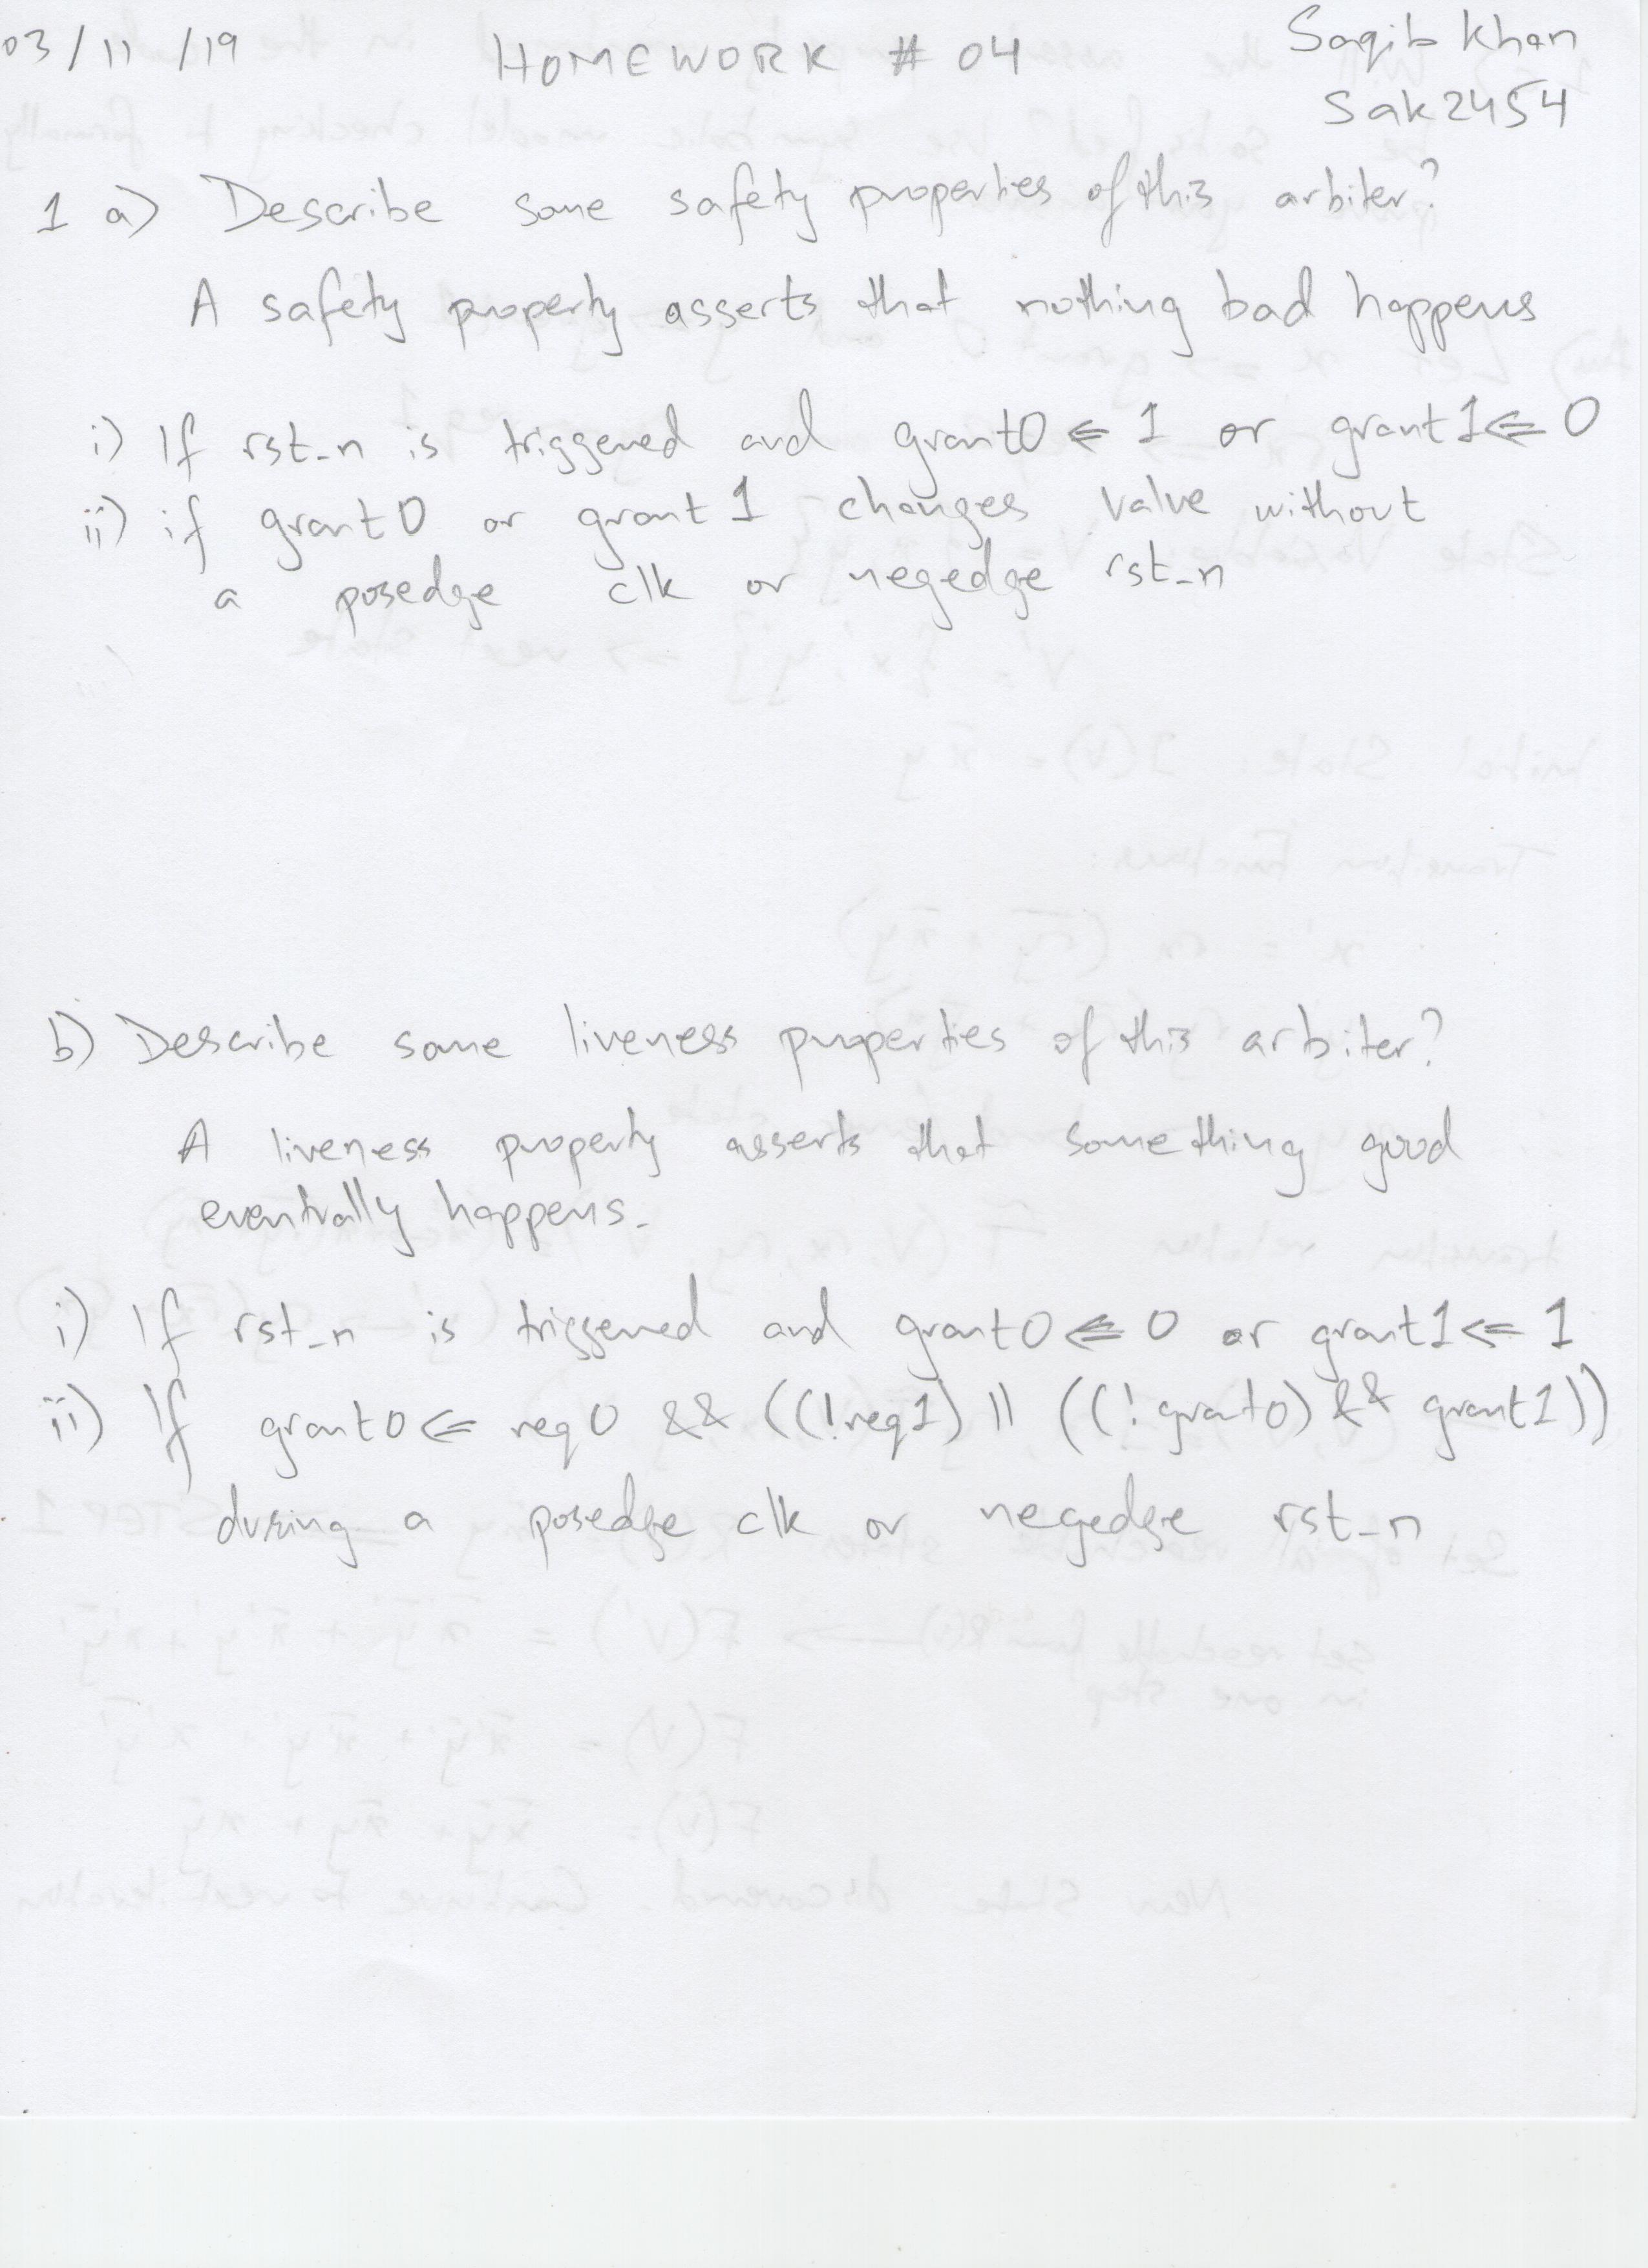 03/11/19 HOMEWORK # 04 Saqib Khan
Sak2454
1 a) Describe some safety properties of this arbiter?
A safety property asserts that nothing bad happens
i) If rst_n is triggered and grant0 <= 1 or grant1 <= 0
ii) if grant0 or grant1 changes value without
a posedge clk or negedge rst_n
b) Describe some liveness properties of this arbiter?
A liveness property asserts that something good
eventually happens.
i) If rst_n is triggered and grant0 <= 0 or grant1 <= 1
ii) If grant0 <= req0 && ((!req1) || ((!grant0) && grant1))
during a posedge clk or negedge rst_n